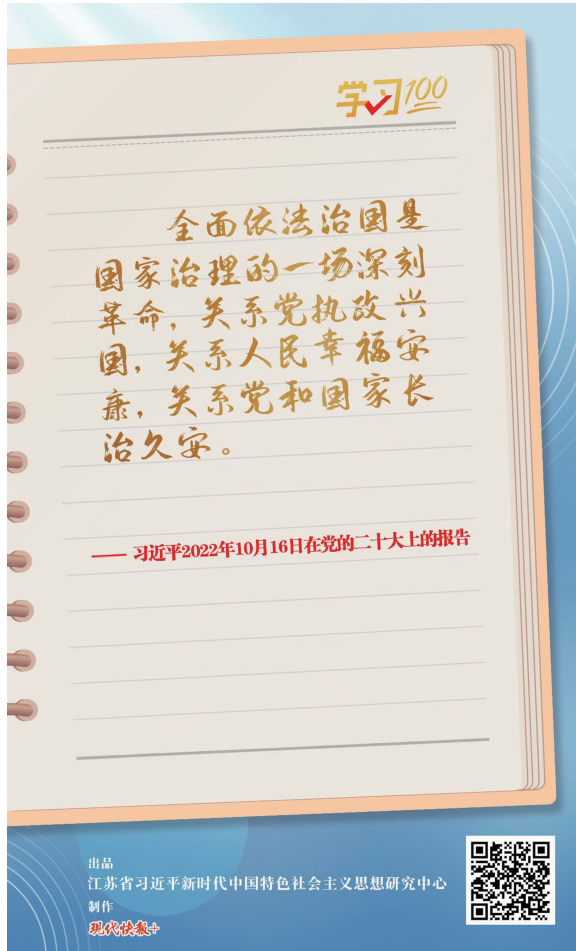 学习100
全面依法治国是
国家治理的一场深刻
革命，关系党执政兴
国，关系人民幸福安
康，关系党和国家长
治久安。
—— 习近平2022年10月16日在党的二十大上的报告
出品
江苏省习近平新时代中国特色社会主义思想研究中心
制作
现代快报+